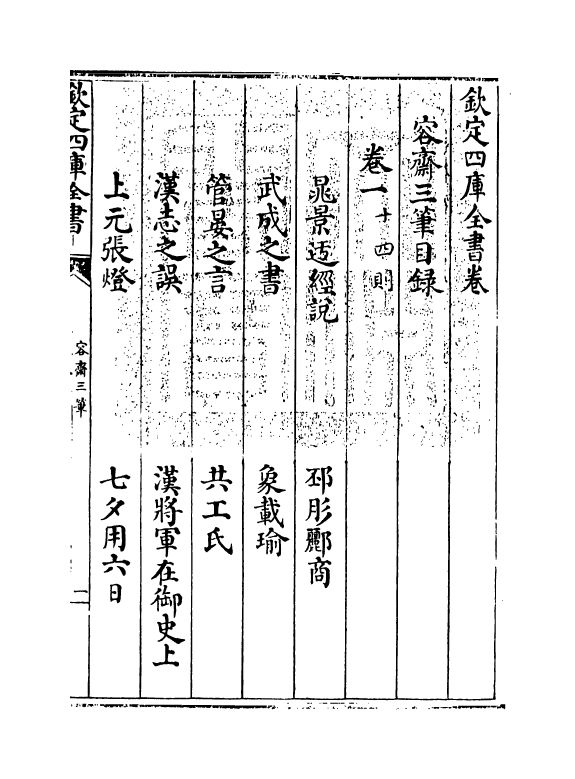 欽定四庫全書卷
容齋三筆目録
卷一十四則
晁景迃經說　邳彤酈商
武成之書　象載瑜
管晏之言　共工氏
漢志之誤　漢將軍在御史上
上元張燈　七夕用六日
欽定四庫全書
容齋三筆
二